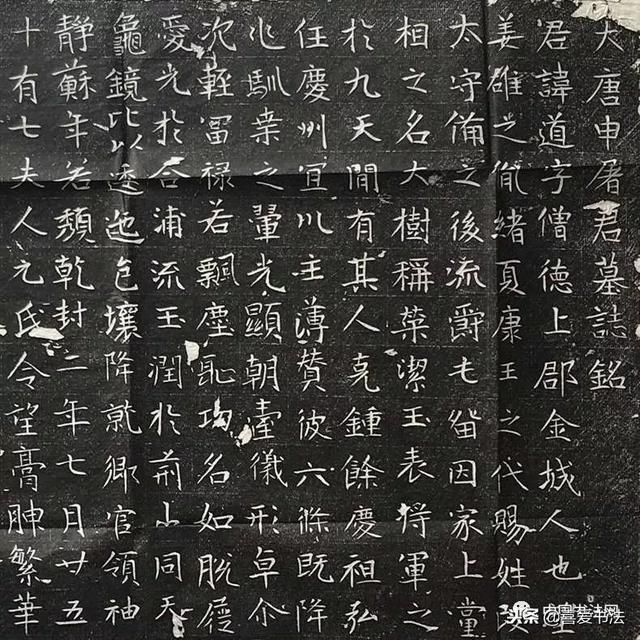 大唐申屠君墓誌銘
君諱道字僧德上郡金城人也
姜雄之胤緒夏康王之代賜姓
太守備之後流爵七留因家上黨
相之名大樹稱榮潔玉表将軍之
於九天間有其人克鍾餘慶祖弘
任慶州宜川主薄賛彼六條既降
光馴雉之暈光顯朝臺徽形卓尒
次輕冨禄若飄塵恥均名如脫屣
愛光於合浦流玉潤於荊山同天
龜鏡比以逶迤包壤降就鄉官領袖
靜蘇年若頽乾封二年七月廿五
十有七夫人元氏令望膏腴繁華
头条 @喜爱书法